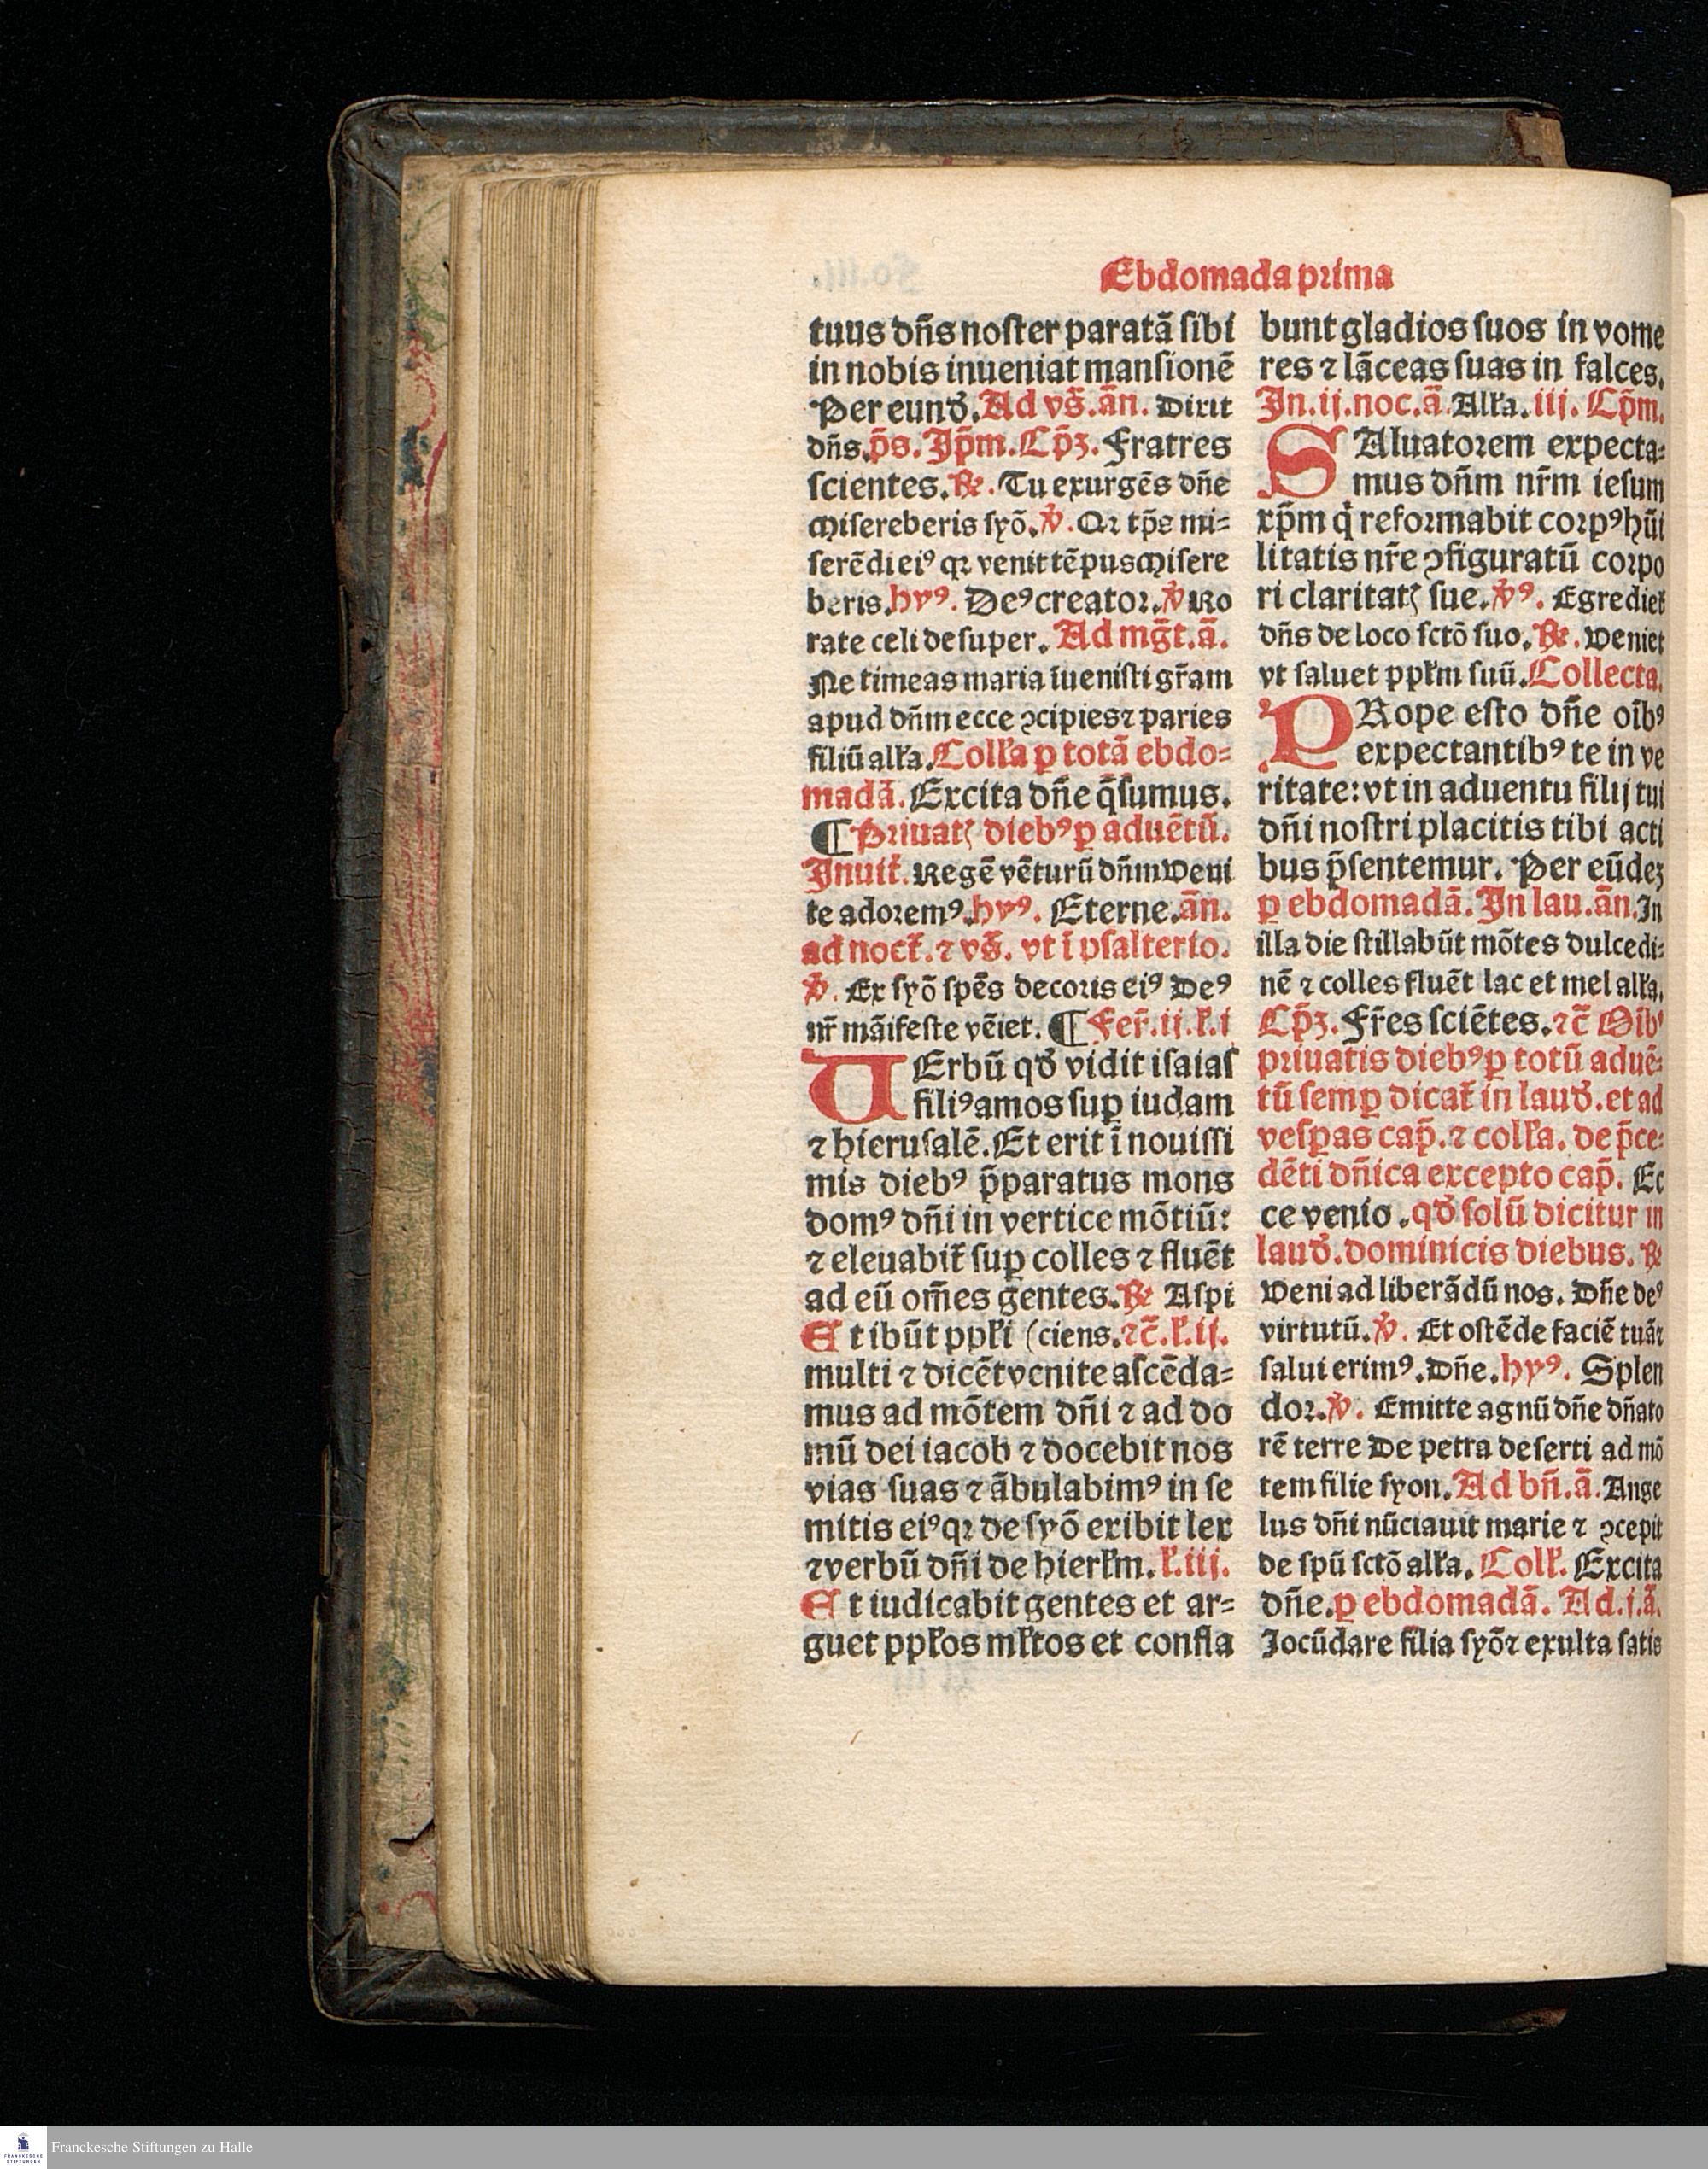 Ebdomada prima
tuus dñs noster paratã sibi
in nobis inueniat mansionẽ
Per eund̃. Ad vs̃. ãn. Dixit
dñs. p̃s. Ip̃m. Cp̃ꝫ. Fratres
scientes. ℟. Tu exurgẽs dñe
Misereberis syõ. ℣. Qꝛ tp̃s mi-
serẽdi eiꝰ qꝛ venit tẽpus Misere
beris. hyꝰ. Deꝰ creator. ℣ Ro
rate celi desuper. Ad mg̃t. ã.
Ne timeas maria ĩuenisti gr̃am
apud dñm ecce ꝯcipies ⁊ paries
filiũ alľa. Colľa ꝑ totã ebdo-
madã. Excita dñe q̃sumus.
¶ Priuatꝭ diebꝰ ꝑ aduẽtũ.
Inuit̃. Regẽ vẽturũ dñm Veni
te adoremꝰ. hyꝰ. Eterne. ãn.
ad noct̃. ⁊ vs̃. vt ĩ psalterio.
℣. Ex syõ spẽs decoris eiꝰ Deꝰ
nr̃ mãifeste vẽiet. ¶ Fer̃. ij. ľ. i
VErbũ qd̃ vidit isaias
filiꝰ amos suꝑ iudam
⁊ hierusalẽ. Et erit ĩ nouissi
mis diebꝰ p̃paratus mons
domꝰ dñi in vertice mõtiũ:
⁊ eleuabit̃ suꝑ colles ⁊ fluẽt
ad eũ om̃es gentes. ℟ Aspi
Et ibũt ppľi (ciens. ⁊c̃. ľ. ij.
multi ⁊ dicẽt venite ascẽda-
mus ad mõtem dñi ⁊ ad do
mũ dei iacob ⁊ docebit nos
vias suas ⁊ ãbulabimꝰ in se
mitis eiꝰ qꝛ de syõ exibit lex
⁊ verbũ dñi de hierľm. ľ. iij.
Et iudicabit gentes et ar-
guet ppľos mľtos et confla
bunt gladios suos in vome
res ⁊ lãceas suas in falces.
In. ij. noc. ã. Alľa. iij. Cp̃m.
SAluatorem expecta-
mus dñm nr̃m iesum
xp̃m q̇ reformabit corpꝰ hũi
litatis nr̃e ꝯfiguratũ corpo
ri claritatꝭ sue. ℣ꝰ. Egrediet̃
dñs de loco sctõ suo. ℟. Veniet
vt saluet ppľm suũ. Collecta.
PRope esto dñe oĩbꝰ
expectantibꝰ te in ve
ritate: vt in aduentu filij tui
dñi nostri placitis tibi acti
bus p̃sentemur. Per eũdeꝫ
ꝑ ebdomadã. In lau. ãn. In
illa die stillabũt mõtes dulcedi-
nẽ ⁊ colles fluẽt lac et mel alľa.
Cp̃ꝫ. Fr̃es sciẽtes. ⁊c̃ Oĩbꝰ
priuatis diebꝰ ꝑ totũ aduẽ-
tũ semꝑ dicat̃ in laud̃. et ad
vesꝑas cap̃. ⁊ colľa. de p̃ce-
dẽti dñica excepto cap̃. Ec
ce venio. qd̃ solũ dicitur in
laud̃. dominicis diebus. ℟
Veni ad liberãdũ nos. Dñe deꝰ
virtutũ. ℣. Et ostẽde faciẽ tuã ⁊
salui erimꝰ. Dñe. hyꝰ. Splen
dor. ℣. Emitte agnũ dñe dñato
rẽ terre De petra deserti ad mõ
tem filie syon. Ad bñ. ã. Ange
lus dñi nũciauit marie ⁊ ꝯcepit
de spũ sctõ alľa. Colľ. Excita
dñe. ꝑ ebdomadã. Ad. j. ã.
Iocũdare filia syõ ⁊ exulta satis
Franckesche Stiftungen zu Halle